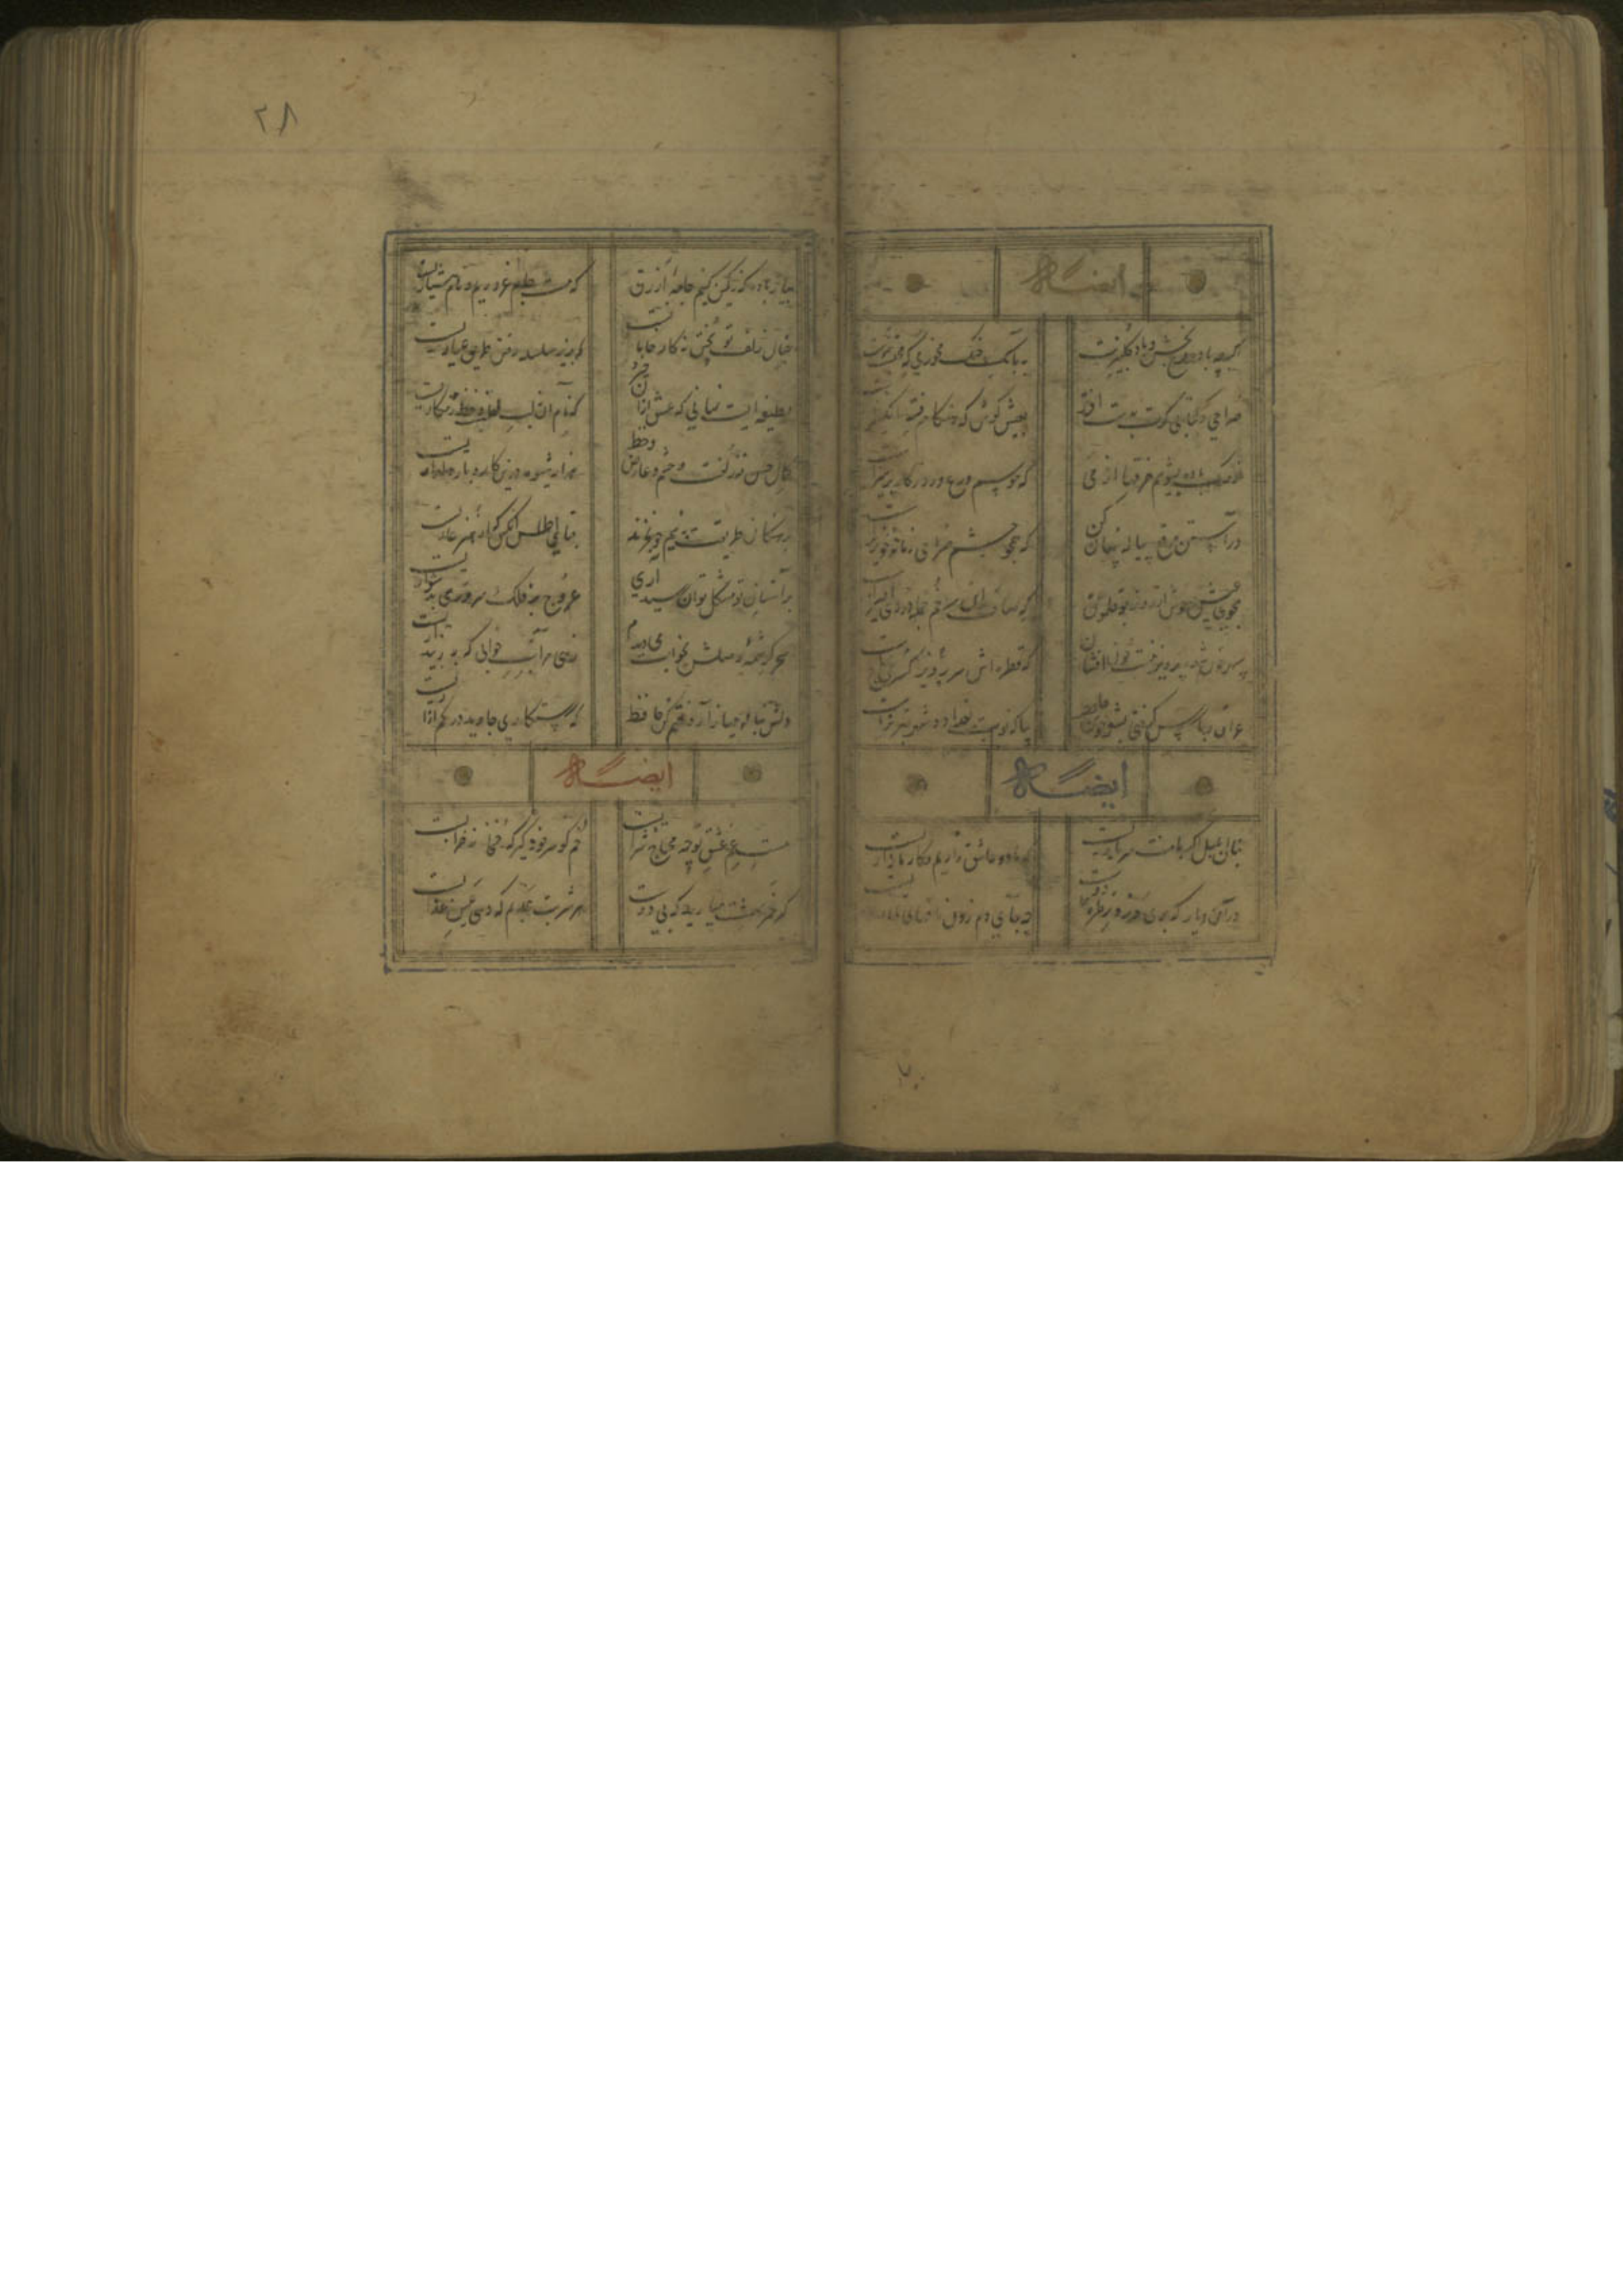 ایضاً له
اگرچه باده فرح بخش و باد گلبیزست
به بانگ چنگ مخور می که محتسب تیزست
صراحی و کتابی گرت به دست افتد
بعیش کوش که هنگام فتنه انگیزست
به آب باده بشوئیم خرقها از می
که موسم ورع و روزگار پرهیزست
در آستین مرقع پیاله پنهان کن
که همچو چشم صراحی زمانه خونریزست
مجوی عیش خوش از دور
که صاف این سر خم جمله دردی آمیزست
سپهر بر شده پرویز نیست خون افشان
که قطره اش سر پرویز کسری
عراق و پارس گرفتی بشعر خوش حافظ
بیا که نوبت بغداد و وقت تبریزست
ایضاً له
بنال بلبل اگر با منت سر یاریست
که ما دو عاشق زاریم و کار ما زاریست
در آن دیار که بوی خوزد ز طره دوست
چه جای دم زدن
۲۸
بیار باده که رنگین کنیم جامه ازرق
که مست جام غروریم و نام هشیاریست
خیال زلف تو پختن نه کار خامانست
که زیر سلسله رفتن طریق عیاریست
لطیفه ایست نهانی که عشق ازان خیزد
که نام آن نه لب لعل و خط زنگاریست
جمال حسن نه زلفست و چشم و عارض و خط
هزار شیوه درین کار و بار دلداریست
برهنگان طریقت بنیم جو نخرند
قبای اطلس آنکس که از هنر عاریست
بر آستان تو مشکل توان رسید آری
عروج بر فلک سروری بدشواریست
سحر کرشمه وصلش بخواب می دیدم
زهی مراتب خوابی که به ز بیداریست
دلش بناله میازار و ختم کن حافظ
که رستگاری جاوید در کم آزاریست
ایضاً له
مستی عشق تو چه محتاج شرابست
خم گو سر خود گیر که خمخانه خرابست
گر خمر بهشتست بریزید که بی دوست
هر شربت عذبم که دهی عین عذابست